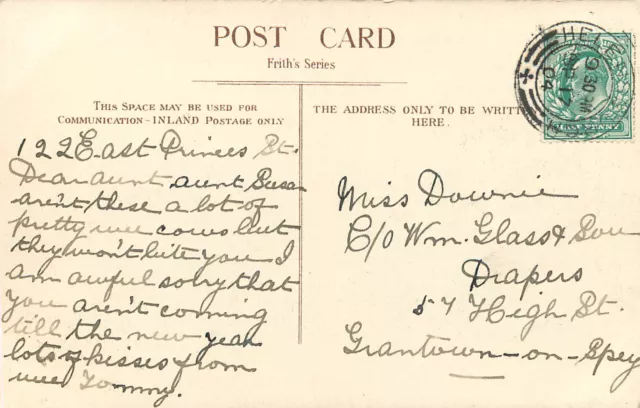 POST CARD
Frith's Series
THIS SPACE MAY BE USED FOR
COMMUNICATION - INLAND POSTAGE ONLY
THE ADDRESS ONLY TO BE WRITT
HERE.
122 East Princes St.
Dear aunt, aunt Susan
aren't these a lot of
pretty wee cows but
they won't bite you I
am awful sorry that
you aren't coming
till the new year
lots of kisses from
wee Tommy.
Miss Downie
C/O Wm. Glass & Son
Drapers
57 High St.
Grantown-on-Spey
HELE
9.30
17
04